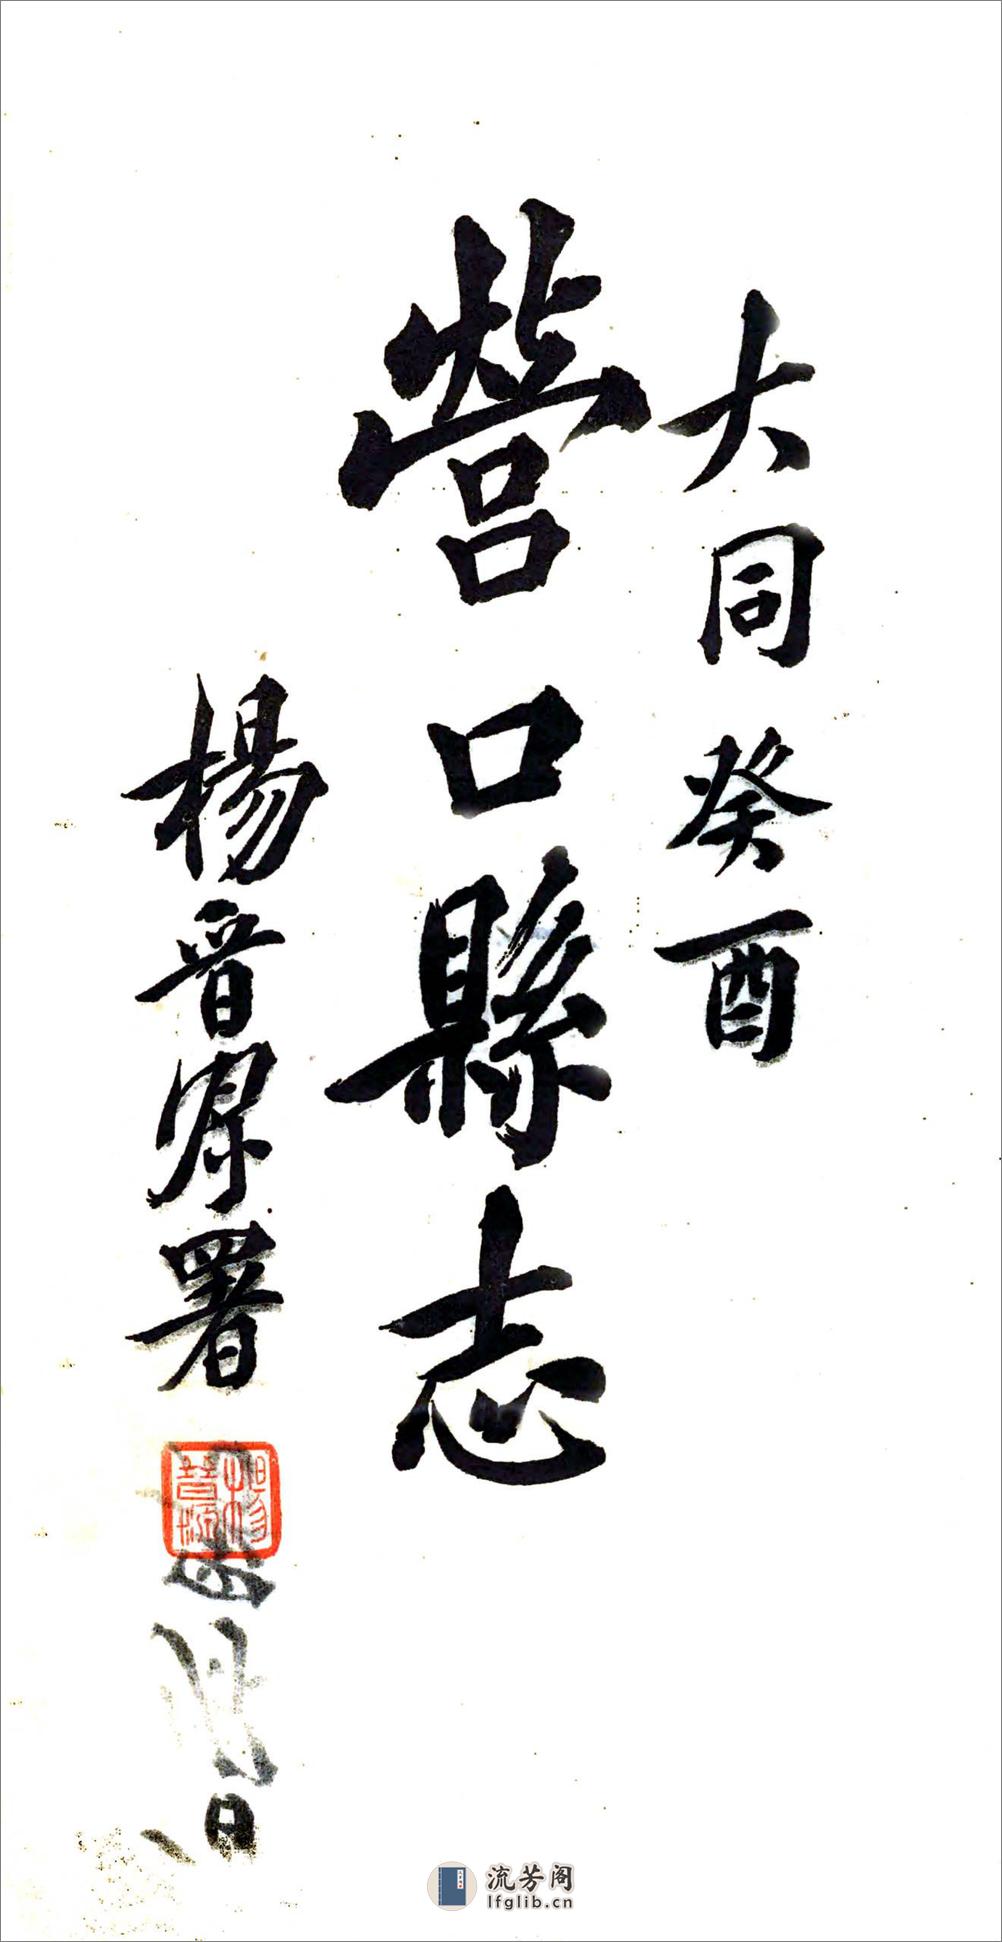 大同癸酉
營口縣志
楊晋源署
楊晉源
流芳阁
lfglib.cn